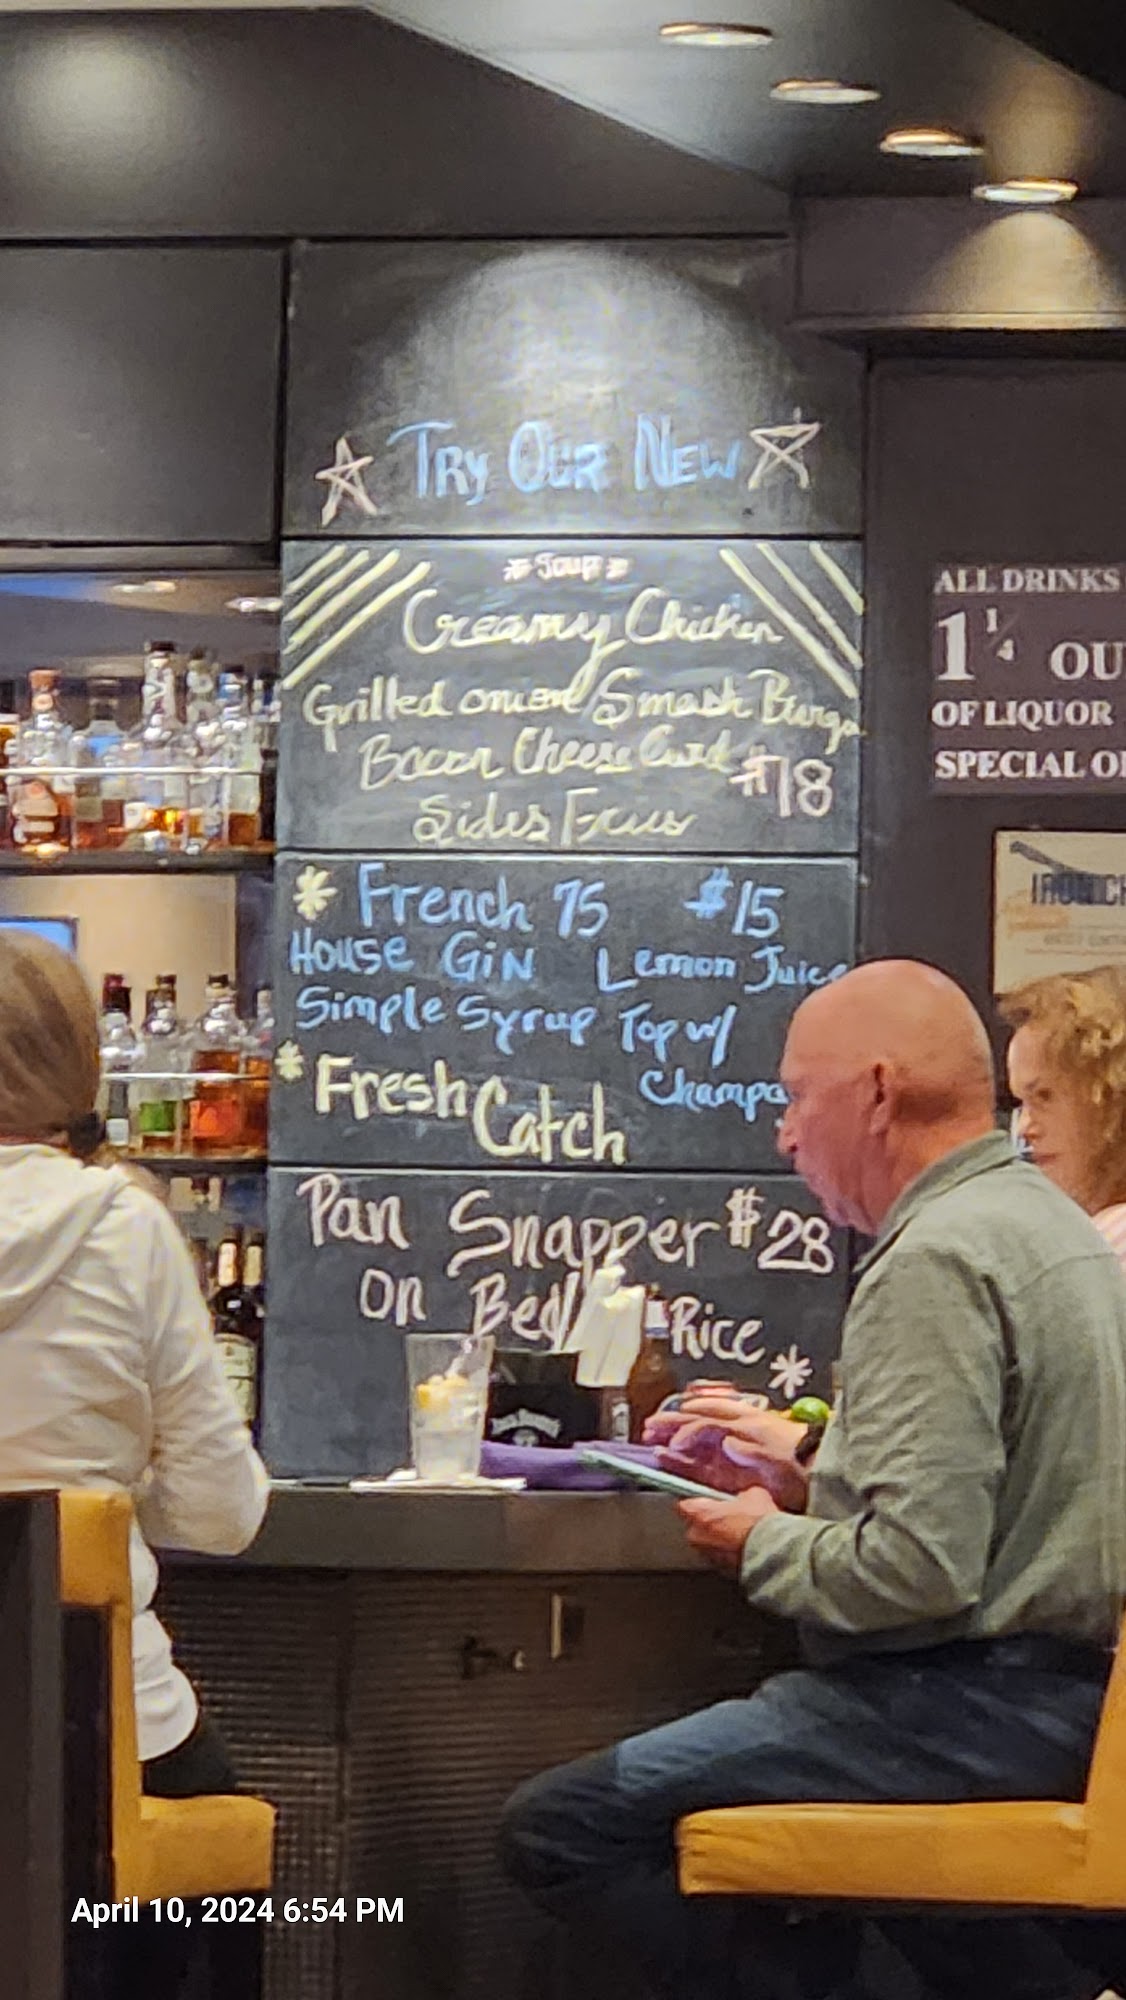 TRY OUR NEW
*SOUP*
Creamy Chicken
Grilled onion Smash Burge
Bacon Cheese Curd $18
Sides Fries
* French 75 $15
House GiN Lemon Juice
Simple Syrup Top w/
Champa
* Fresh Catch
Pan Snapper $28
on Bed Rice *
ALL DRINKS
1 1/4 OU
OF LIQUOR
SPECIAL O
IRON CH
April 10, 2024 6:54 PM